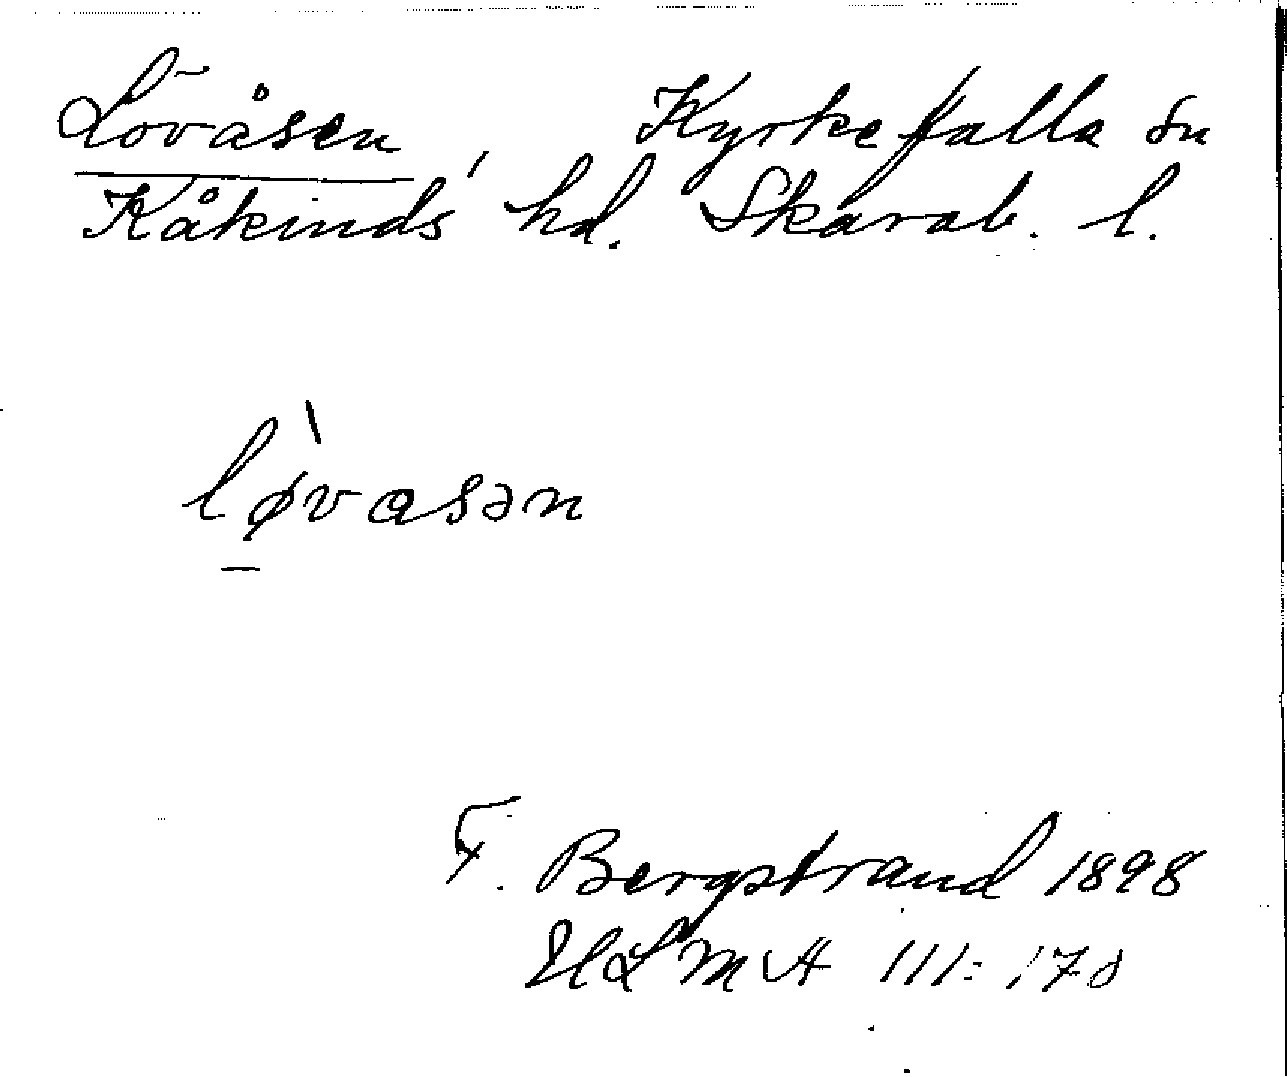 Lövåsen, Kyrkefalla sn
Kåkinds hd. Skarab. l.
lø̀vasən
F. Bergstrand 1898
ULMA 111: